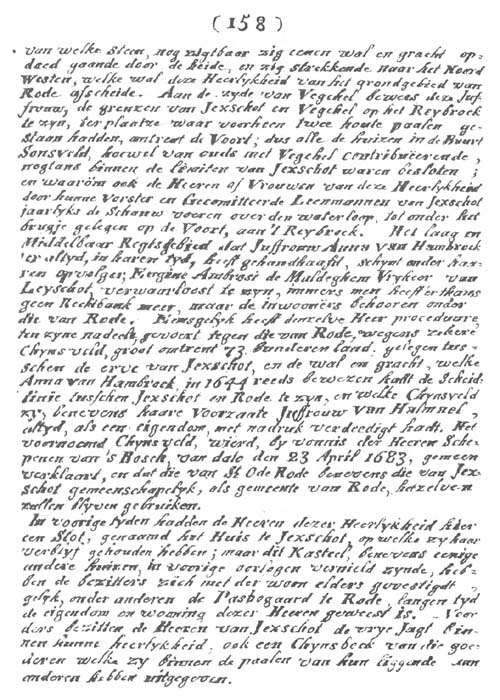 (158)
van welke Steen, nog zigtbaar zig eenen wal en gracht op-
daed gaande door de heide, en zig strekkende naar het Noord
Westen, welke wal deze Heerlykheid van het grondgebied van
Rode afscheide. Aan de zyde van Veghel bewees deze Juf-
frouw, de grenzen van Jexschot en Veghel op het Reybroek
te zyn, ter plaatze waar voorheen twee houte paalen ge-
staan hadden, omtrent de Voort; dus alle de huizen in de Buurt
Sonsveld, hoewel van ouds met Veghel contribueerende,
nogtans binnen de Limiten van Jexschot waren besloten;
en waaröm ook de Heeren of Vrouwen van deze Heerlykheid
door hunne Vorster en Gecomitteerde Leenmannen van Jexschot
jaarlyks de Schouw voeren over den waterloop, tot onder het
brugje gelegen op de Voort, aan 't Reybroek. Het laag en
Middelbaar Regtsgebied dat Juffrouw Anna van Hambroek
'er altyd, in haren tyd, heeft gehandhaafd, schynt onder haa-
ren opvolger, Eugine Ambrosi de Muldeghem Vryheer van
Leyschot, verwaarloost te zyn, immers men heeft er thans
geen Rechtbank meer, maar de inwooners behooren onder
die van Rode. Eensgelyk heeft denzelve Heer proceduure,
ten zyne nadeele, gevoert tegen die van Rode, wegens zekere
Chyns veld, groot omtrent 73. bunderen land, gelegen tus-
schen de erve van Jexschot, en de wal en gracht, welke
Anna van Hambroek, in 1644 reeds bewezen hadt de Scheid-
linie tusschen Jexschot en Rode te zyn, en welke Chynsveld
zy, benevens haare Voorzante Juffrouw van Hulmnel,
altyd, als een eigendom, met nadruk verdeedigt hadt. Het
voornoemd Chynsveld, wierd, by vonnis der Heeren Sche-
penen van 's Bosch, van dato den 23 April 1683, gemeen
verklaart, en dat die van St Ode Rode benevens die van Jex-
schot gemeenschapelyk, als gemeente van Rode, hetzelven
zullen blyven gebruiken.
In voorige tyden hadden de Heeren dezer Heerlykheid hier
een Slot, genaamd het Huis te Jexschot, op welke zy haar
verblyf gehouden hebben; maar dit Kasteel, benevens eenige
andere huizen, in voorige oorlogen vernield zynde, heb-
ben de bezitters zich met der woon elders gevestigdt,
gelyk, onder anderen de Pasbogaard te Rode, langen tyd
de eigendom en wooning dezer Heeren geweest is. Voor
ders bezitten de Heeren van Jexschot de vrye Jagt bin-
nen hunne heerlykheid, ook een Chynsboek van die goe-
deren welke zy binnen de paalen van hun liggende aan
anderen hebben uitgegeven.